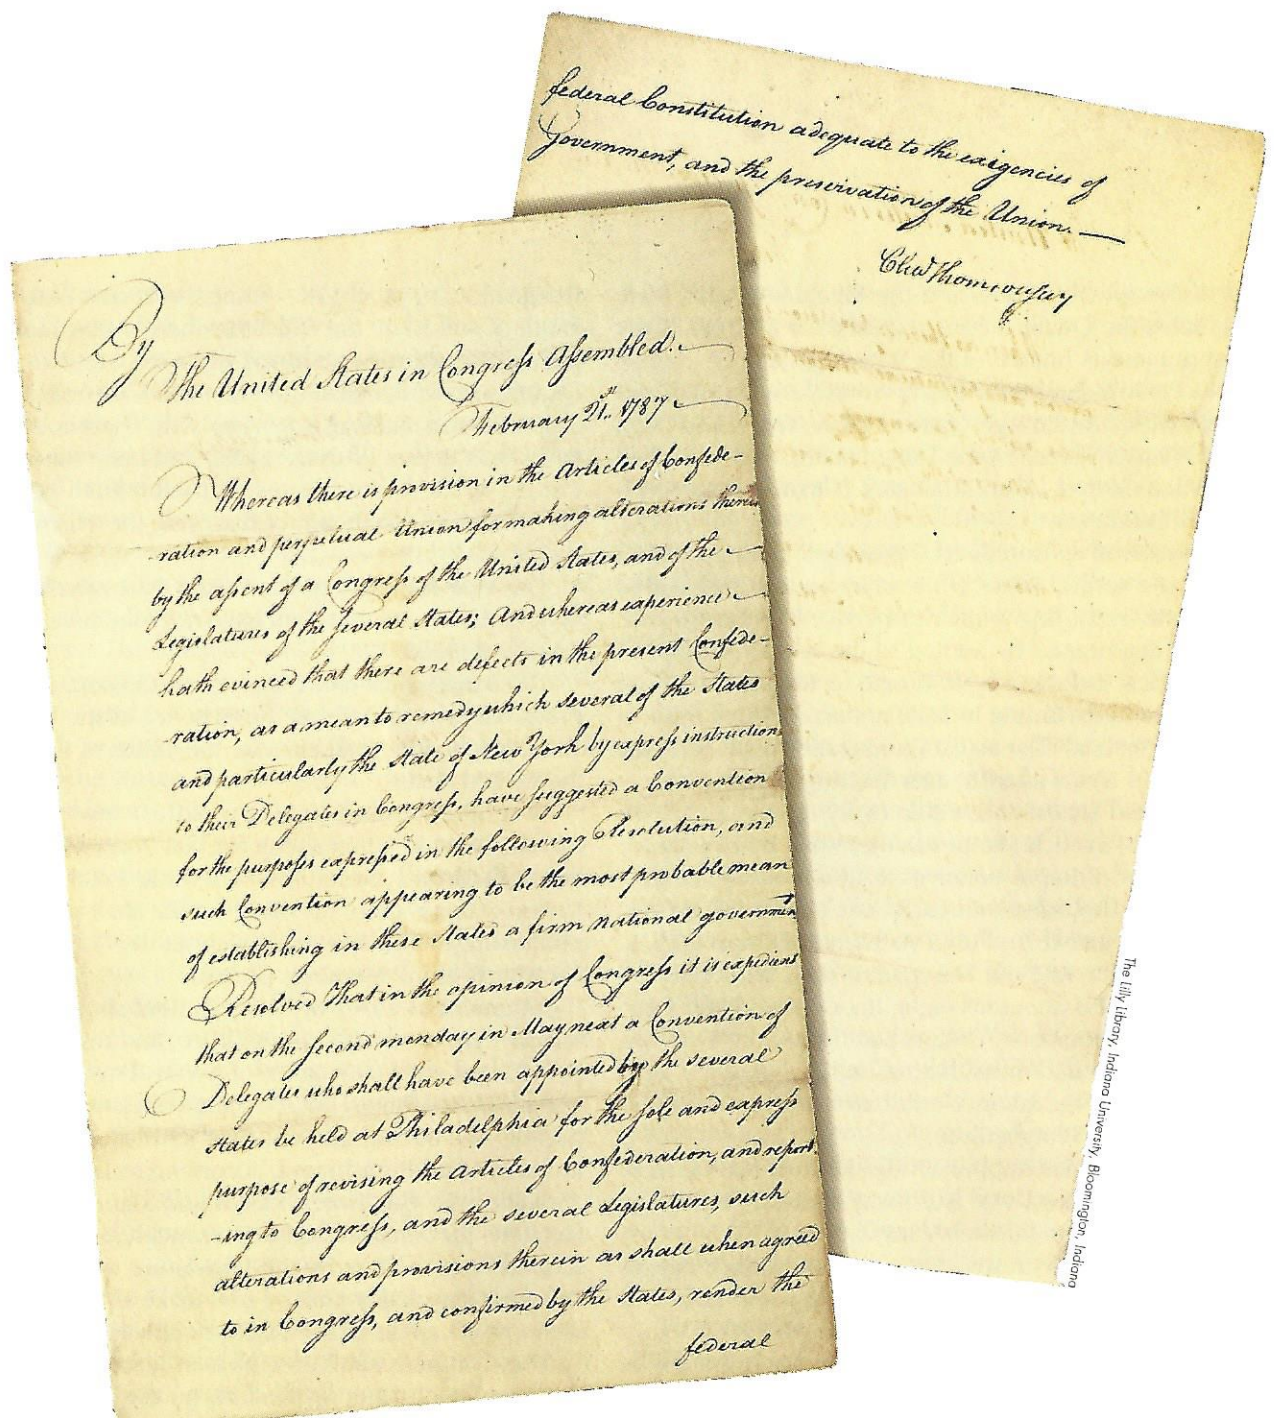 By
The United States in Congress Assembled.
February 21st. 1787
Whereas there is provision in the Articles of Confede-
-ration and perpetual Union for making alterations therein
by the assent of a Congress of the United States, and of the
Legislatures of the several States; And whereas experience
hath evinced that there are defects in the present Confede-
-ration, as a mean to remedy which several of the States
and particularly the State of New York by express instructions
to their Delegates in Congress, have suggested a Convention
for the purposes expressed in the following Resolution, and
such Convention appearing to be the most probable mean
of establishing in these States a firm national government
Resolved That in the opinion of Congress it is expedient
that on the second monday in May next a Convention of
Delegates who shall have been appointed by the several
States be held at Philadelphia for the sole and express
purpose of revising the Articles of Confederation, and report-
-ing to Congress, and the several Legislatures, such
alterations and provisions therein as shall when agreed
to in Congress, and confirmed by the States, render the
federal
federal Constitution adequate to the exigencies of
Government, and the preservation of the Union.
Chas Thomson Secy
The Lilly Library, Indiana University, Bloomington, Indiana